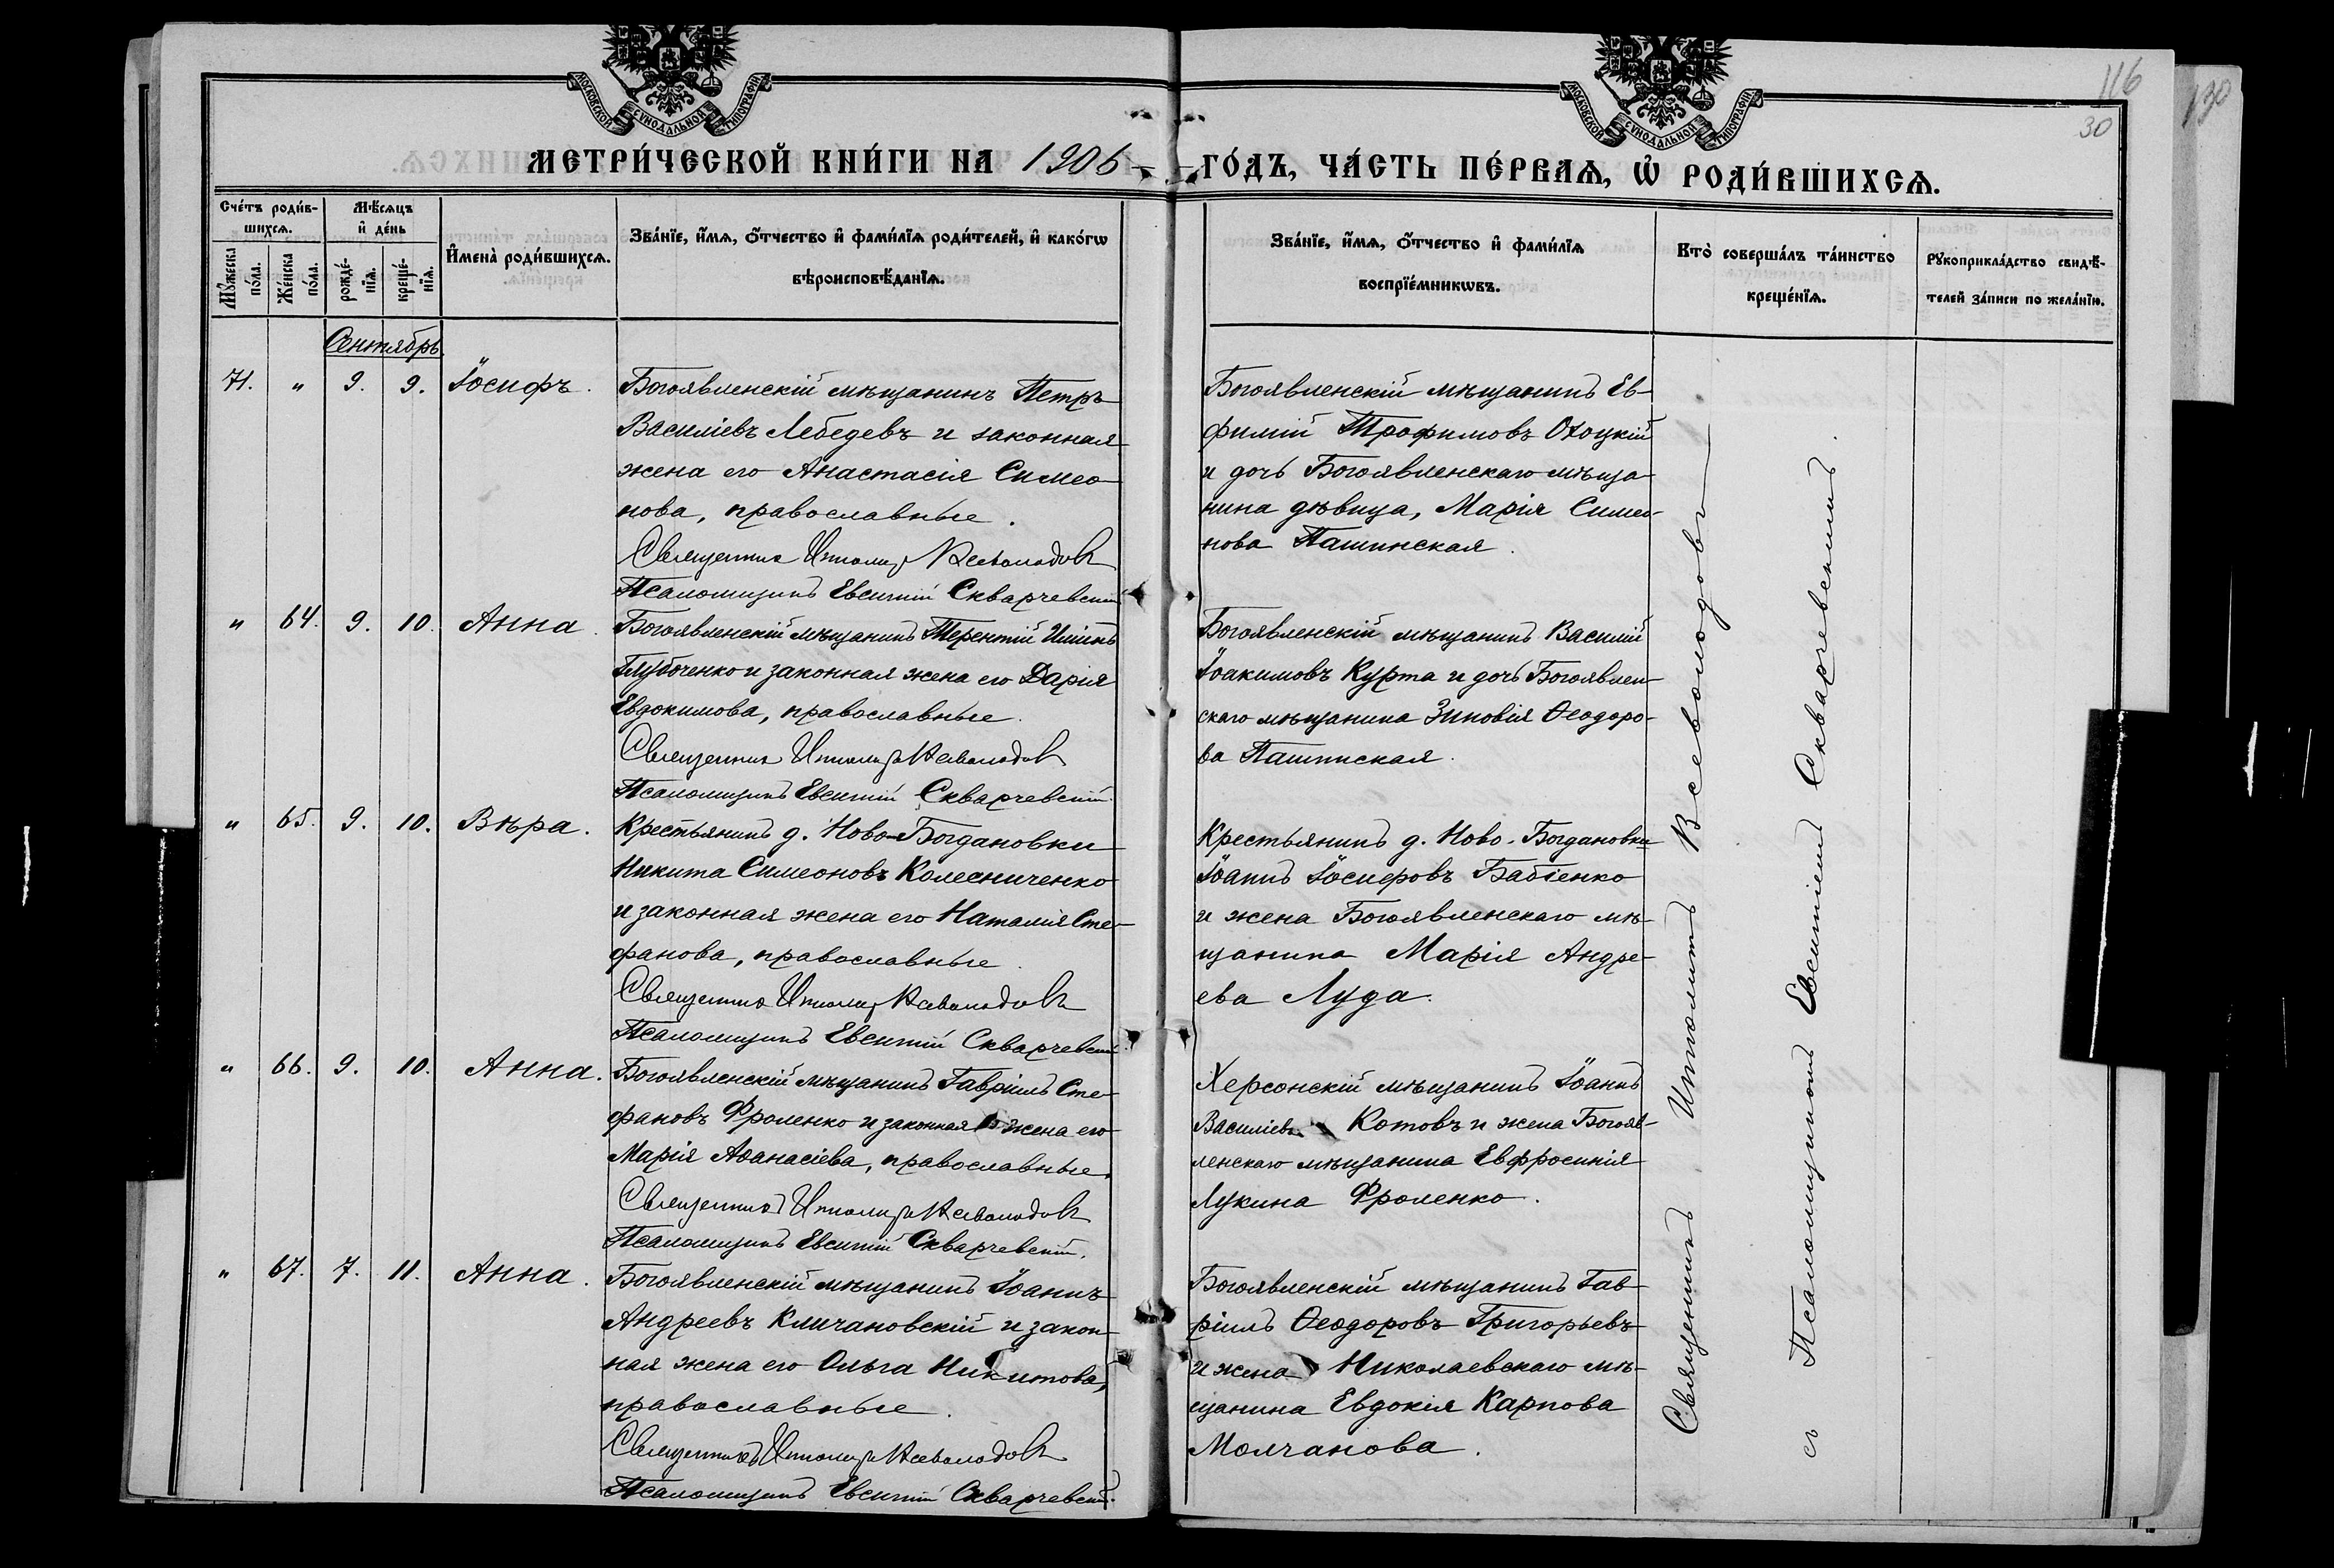 МОСКОВСКОЙ СѴНОДАЛЬНОЙ ТИПОГРАФІИ
МОСКОВСКОЙ СѴНОДАЛЬНОЙ ТИПОГРАФІИ
116
30
130
МЕТРИ́ЧЕСКОЙ КНИ́ГИ НА 1906 ГО́ДЪ, ЧА́СТЬ ПЕ́РВАѦ, Ѡ҆ РОДИ́ВШИХСѦ.
Счéтъ роди́в-
шихсѧ.
Мѣ́сѧцъ
и҆ дéнь
Мꙋ́жеска
по́ла.
Жéнска
по́ла.
рождé-
нїѧ.
крещé-
нїѧ.
И҆менà роди́вшихсѧ.
Звáнїе, и҆́мѧ, ѻ҆́тчество и҆ фами́лїѧ роди́телей, и҆ какóгѡ
вѣроисповѣ́данїѧ.
Звáнїе, и҆́мѧ, ѻ҆́тчество и҆ фами́лїѧ
воспрїéмникѡвъ.
Ктò совершáлъ тáинство
крещéнїѧ.
Рꙋкоприклáдство свидѣ́-
телей зáписи по желáнїю.
Сентябрь
71. " 9. 9. Іосифъ.
Богоявленскій мѣщанинъ Петръ
Василіевъ Лебедевъ и законная
жена его Анастасія Симео-
нова, православные.
Священникъ Ипполитъ Всеволодовъ
Псаломщикъ Евсигній Скварчевскій
Богоявленскій мѣщанинъ Ев-
фимій Трофимовъ Охоцкій
и дочь Богоявленскаго мѣща-
нина дѣвица, Марія Симео-
нова Пашинская.
" 64. 9. 10. Анна.
Богоявленскій мѣщанинъ Терентій
Глубоченко и законная жена его Дарія
Евдокимова, православные.
Священникъ Ипполитъ Всеволодовъ
Псаломщикъ Евсигній Скварчевскій.
Богоявленскій мѣщанинъ Василій
Іоакимовъ Курта и дочь Богоявлен-
скаго мѣщанина Зиновія Ѳеодоро-
ва Пашинская.
" 65. 9. 10. Вѣра.
Крестьянинъ д. Ново-Богдановки
Никита Симеоновъ Колесниченко
и законная жена его Наталія Сте-
фанова, православные.
Священникъ Ипполитъ Всеволодовъ
Псаломщикъ Евсигній Скварчевскій
Крестьянинъ д. Ново-Богдановки
Іоаннъ Іосифовъ Бабіенко
и жена Богоявленскаго мѣ-
щанина Марія Андре-
ева Луда.
" 66. 9. 10. Анна.
Богоявленскій мѣщанинъ Гавріилъ Сте-
фановъ Фроленко и законная жена его
Марія Аѳанасіева, православные.
Священникъ Ипполитъ Всеволодовъ
Псаломщикъ Евсигній Скварчевскій.
Херсонскій мѣщанинъ Іоаннъ
Василіевъ Котовъ и жена Богояв-
ленскаго мѣщанина Евфросинія
Лукина Фроленко.
" 67. 7. 11. Анна.
Богоявленскій мѣщанинъ Іоаннъ
Андреевъ Кличановскій и закон-
ная жена его Ольга Никитова,
православные.
Священникъ Ипполитъ Всеволодовъ
Псаломщикъ Евсигній Скварчевскій.
Богоявленскій мѣщанинъ Гав-
ріилъ Ѳеодоровъ Григорьевъ
и жена Николаевскаго мѣ-
щанина Евдокія Карпова
Молчанова.
Священникъ Ипполитъ Всеволодовъ
съ Псаломщикомъ Евсигніемъ Скварчевскимъ.